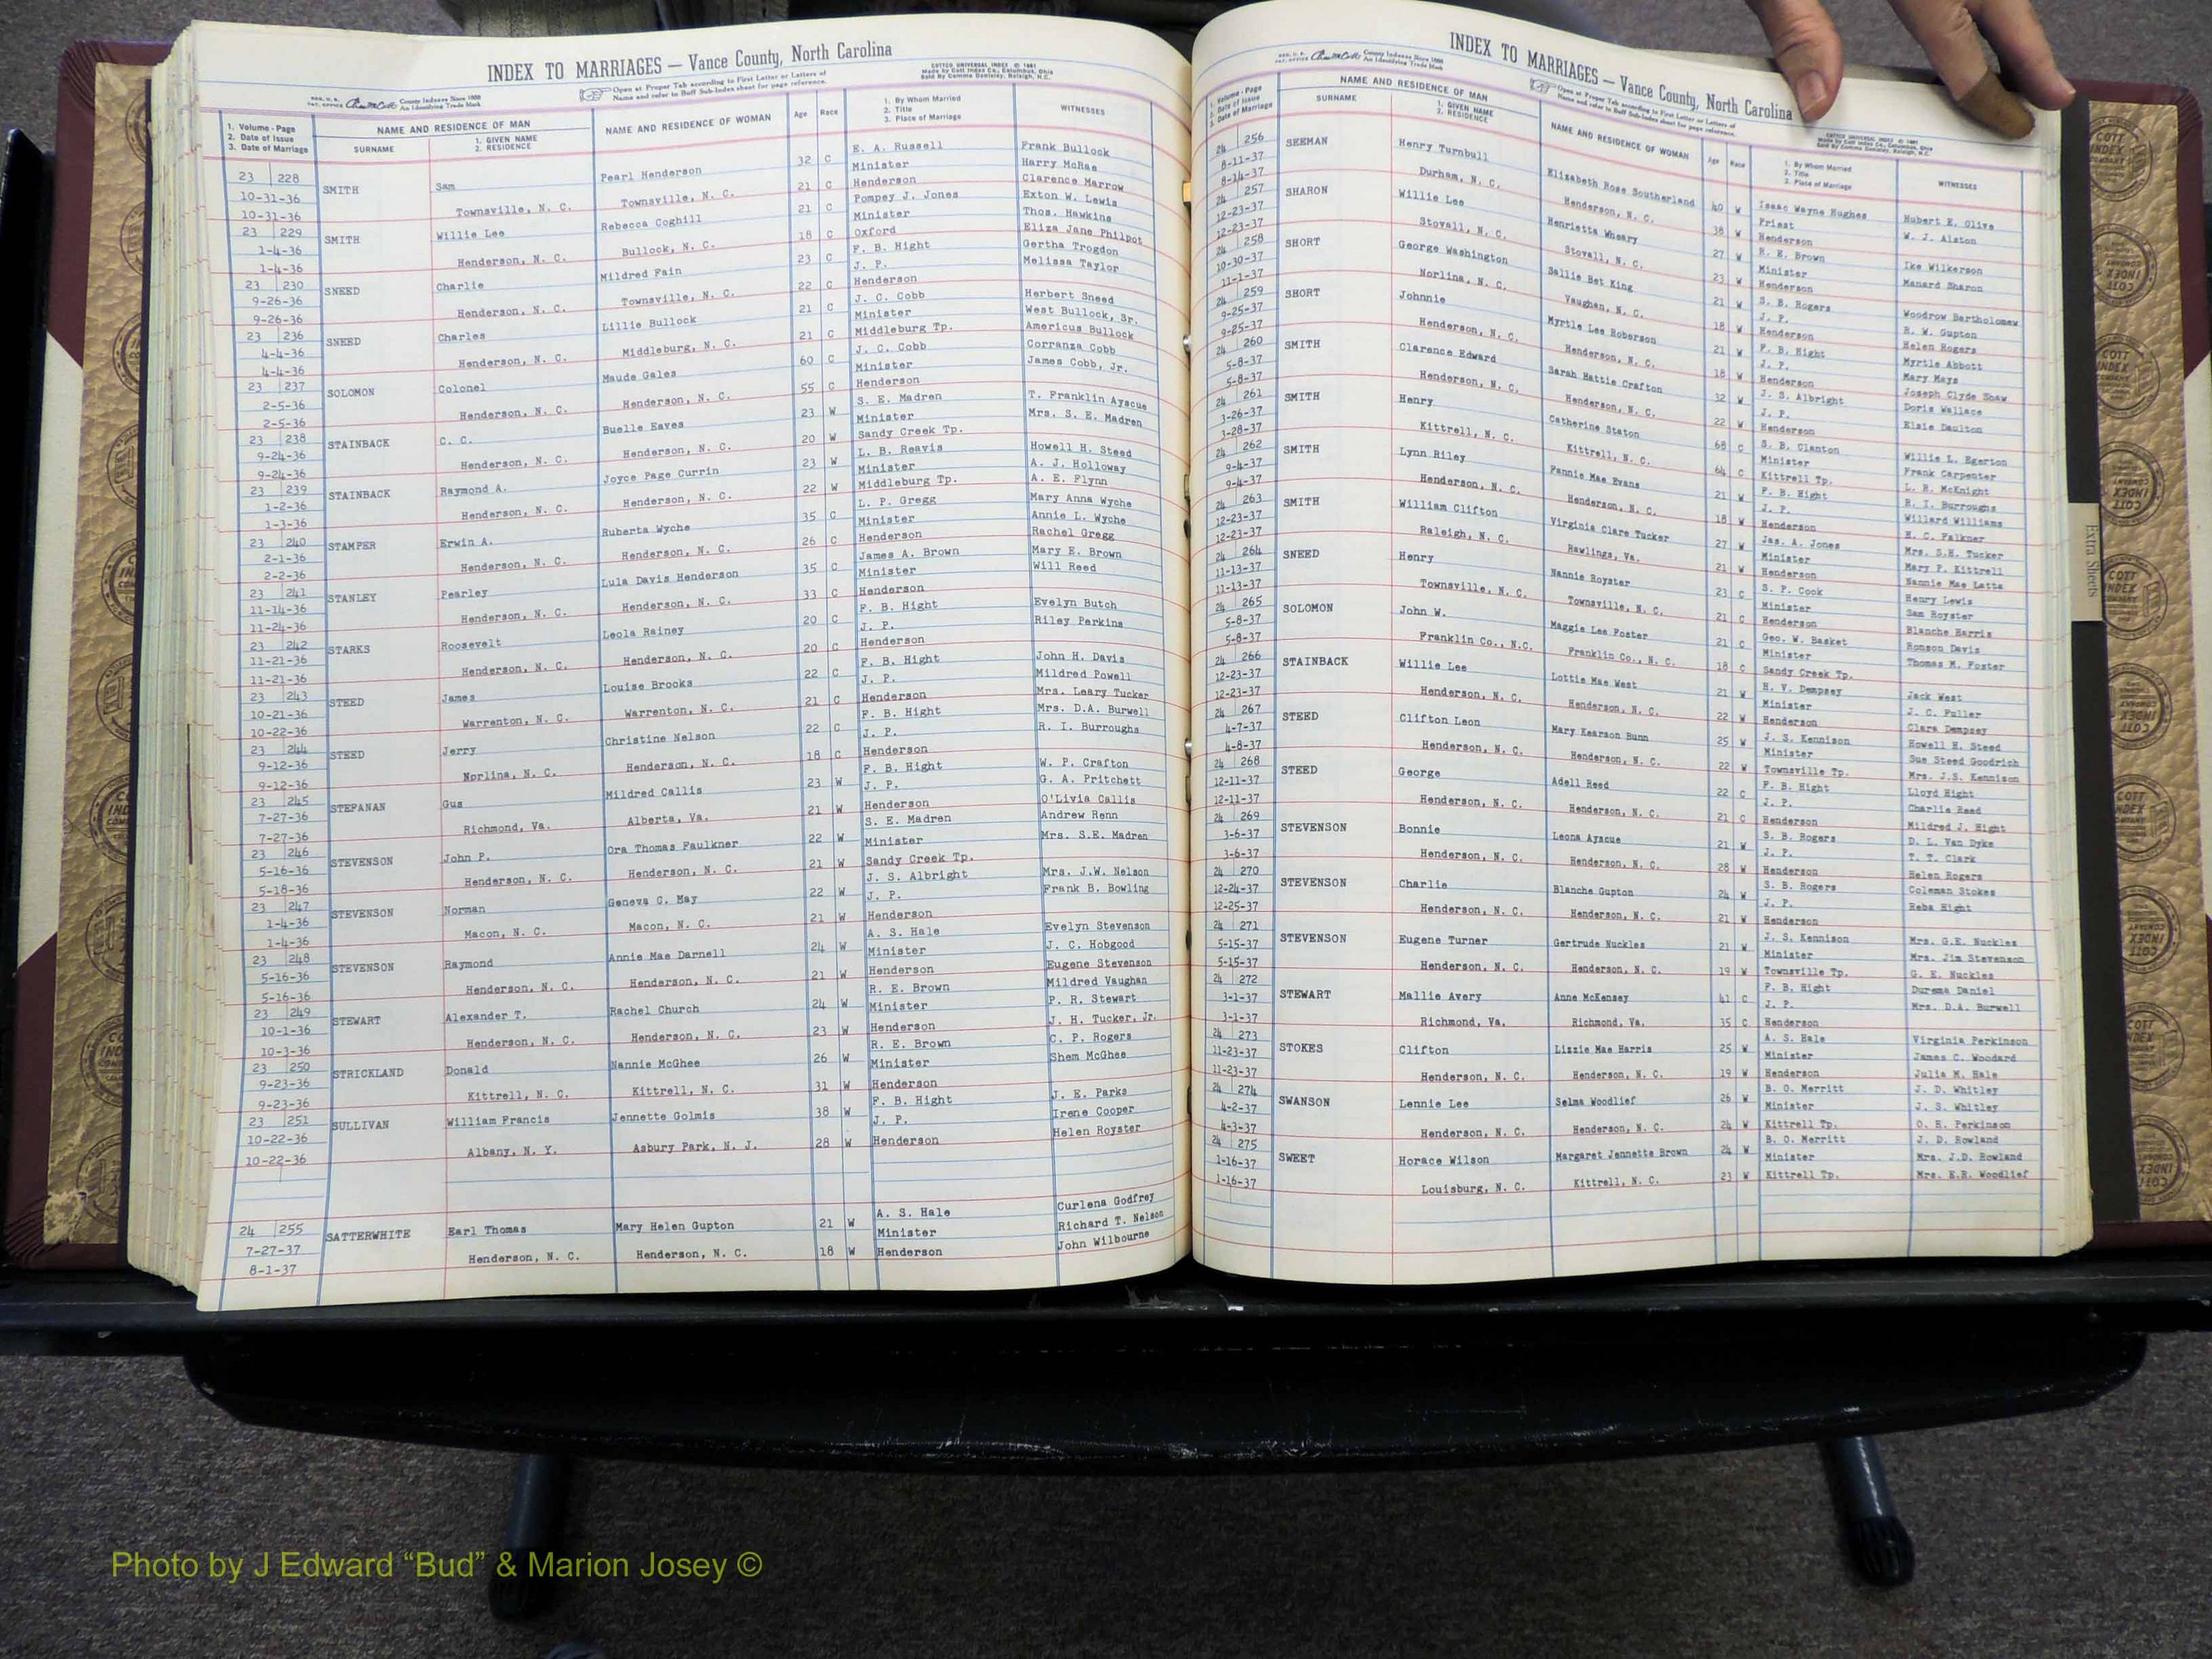 INDEX TO MARRIAGES — Vance County, North Carolina
Open at Proper Tab according to First Letter or Letters of
Name and refer to Buff Sub-Index sheet for page reference.
COTTED UNIVERSAL INDEX
Made by Cott Index Co., Columbus, Ohio
County Indexes Since 1888
An Identifying Trade Mark
1. Volume - Page
2. Date of Issue
3. Date of Marriage
NAME AND RESIDENCE OF MAN
SURNAME
1. GIVEN NAME
2. RESIDENCE
NAME AND RESIDENCE OF WOMAN
Age
Race
1. By Whom Married
2. Title
3. Place of Marriage
WITNESSES
23 228 SMITH Sam Pearl Henderson 32 C E. A. Russell Frank Bullock
10-31-36 Townsville, N. C. Townsville, N. C. 21 C Minister Harry McRae
10-31-36 Henderson Clarence Marrow
23 229 SMITH Willie Lee Rebecca Coghill 21 C Pompey J. Jones Exton W. Lewis
1-4-36 Henderson, N. C. Bullock, N. C. 18 C Minister Thos. Hawkins
1-4-36 Oxford Eliza Jane Philpot
23 230 SNEED Charlie Mildred Fain 23 C F. B. Hight Gertha Trogdon
9-26-36 Henderson, N. C. Townsville, N. C. 22 C J. P. Melissa Taylor
9-26-36 Henderson
23 236 SNEED Charles Lillie Bullock 21 C J. C. Cobb Herbert Sneed
4-4-36 Henderson, N. C. Middleburg, N. C. 21 C Minister West Bullock, Sr.
4-4-36 Middleburg Tp. Americus Bullock
23 237 SOLOMON Colonel Maude Gales 60 C J. C. Cobb Corranza Cobb
2-5-36 Henderson, N. C. Henderson, N. C. 55 C Minister James Cobb, Jr.
2-5-36 Henderson
23 238 STAINBACK C. C. Buelle Eaves 23 W S. E. Madren T. Franklin Ayscue
9-24-36 Henderson, N. C. Henderson, N. C. 20 W Minister Mrs. S. E. Madren
9-24-36 Sandy Creek Tp.
23 239 STAINBACK Raymond A. Joyce Page Currin 23 W L. B. Reavis Howell H. Steed
1-2-36 Henderson, N. C. Henderson, N. C. 22 W Minister A. J. Holloway
1-3-36 Middleburg Tp. A. E. Flynn
23 240 STAMPER Erwin A. Ruberta Wyche 35 C L. P. Gregg Mary Anna Wyche
2-1-36 Henderson, N. C. Henderson, N. C. 26 C Minister Annie L. Wyche
2-2-36 Henderson Rachel Gregg
23 241 STANLEY Pearley Lula Davis Henderson 35 C James A. Brown Mary E. Brown
11-14-36 Henderson, N. C. Henderson, N. C. 33 C Minister Will Reed
11-24-36 Henderson
23 242 STARKS Roosevelt Leola Rainey 20 C F. B. Hight Evelyn Butch
11-21-36 Henderson, N. C. Henderson, N. C. 20 C J. P. Riley Perkins
11-21-36 Henderson
23 243 STEED James Louise Brooks 22 C F. B. Hight John H. Davis
10-21-36 Warrenton, N. C. Warrenton, N. C. 21 C J. P. Mildred Powell
10-22-36 Henderson Mrs. Leary Tucker
23 244 STEED Jerry Christine Nelson 22 C F. B. Hight Mrs. D.A. Burwell
9-12-36 Norlina, N. C. Henderson, N. C. 18 C J. P. R. I. Burroughs
9-12-36 Henderson
23 245 STEFANAN Gus Mildred Callis 23 W F. B. Hight W. P. Crafton
7-27-36 Richmond, Va. Alberta, Va. 21 W J. P. G. A. Pritchett
7-27-36 Henderson O'Livia Callis
23 246 STEVENSON John P. Ora Thomas Faulkner 22 W S. E. Madren Andrew Renn
5-16-36 Henderson, N. C. Henderson, N. C. 21 W Minister Mrs. S.E. Madren
5-18-36 Sandy Creek Tp.
23 247 STEVENSON Norman Geneva C. May 22 W J. S. Albright Mrs. J.W. Nelson
1-4-36 Macon, N. C. Macon, N. C. 21 W J. P. Frank B. Bowling
1-4-36 Henderson
23 248 STEVENSON Raymond Annie Mae Darnell 24 W A. S. Hale Evelyn Stevenson
5-16-36 Henderson, N. C. Henderson, N. C. 21 W Minister J. C. Hobgood
5-16-36 Henderson Eugene Stevenson
23 249 STEWART Alexander T. Rachel Church 24 W R. E. Brown Mildred Vaughan
10-1-36 Henderson, N. C. Henderson, N. C. 23 W Minister P. R. Stewart
10-3-36 Henderson J. H. Tucker, Jr.
23 250 STRICKLAND Donald Nannie McGhee 26 W R. E. Brown C. P. Rogers
9-23-36 Kittrell, N. C. Kittrell, N. C. 31 W Minister Shem McGhee
9-23-36 Henderson
23 251 SULLIVAN William Francis Jennette Golmis 38 W F. B. Hight J. E. Parks
10-22-36 Albany, N. Y. Asbury Park, N. J. 28 W J. P. Irene Cooper
10-22-36 Henderson Helen Royster
24 255 SATTERWHITE Earl Thomas Mary Helen Gupton 21 W A. S. Hale Curlena Godfrey
7-27-37 Henderson, N. C. Henderson, N. C. 18 W Minister Richard T. Nelson
8-1-37 Henderson John Wilbourne
INDEX TO MARRIAGES — Vance County, North Carolina
Open at Proper Tab according to First Letter or Letters of
Name and refer to Buff Sub-Index sheet for page reference.
County Indexes Since 1888
An Identifying Trade Mark
1. Volume - Page
2. Date of Issue
3. Date of Marriage
NAME AND RESIDENCE OF MAN
SURNAME
1. GIVEN NAME
2. RESIDENCE
NAME AND RESIDENCE OF WOMAN
Age
Race
1. By Whom Married
2. Title
3. Place of Marriage
WITNESSES
24 256 SEEMAN Henry Turnbull Elizabeth Rose Southerland 40 W Isaac Wayne Hughes Hubert E. Olive
8-11-37 Durham, N. C. Henderson, N. C. 38 W Priest W. J. Alston
8-14-37 Henderson
24 257 SHARON Willie Lee Henrietta Wheary 27 W R. E. Brown Ike Wilkerson
12-23-37 Stovall, N. C. Stovall, N. C. 23 W Minister Manard Sharon
12-23-37 Henderson
24 258 SHORT George Washington Sallie Bet King 21 W S. B. Rogers Woodrow Bartholomew
10-30-37 Norlina, N. C. Vaughan, N. C. 18 W J. P. R. W. Gupton
11-1-37 Henderson Helen Rogers
24 259 SHORT Johnnie Myrtle Lee Roberson 21 W F. B. Hight Myrtle Abbott
9-25-37 Henderson, N. C. Henderson, N. C. 18 W J. P. Mary Mays
9-25-37 Henderson Joseph Clyde Shaw
24 260 SMITH Clarence Edward Sarah Hattie Crafton 32 W J. S. Albright Doris Wallace
5-8-37 Henderson, N. C. Henderson, N. C. 22 W J. P. Elsie Daulton
5-8-37 Henderson
24 261 SMITH Henry Catherine Staton 68 C S. B. Clanton Willie L. Egerton
3-26-37 Kittrell, N. C. Kittrell, N. C. 64 C Minister Frank Carpenter
3-28-37 Kittrell Tp. L. B. McKnight
24 262 SMITH Lynn Riley Fannie Mae Evans 21 W F. B. Hight R. I. Burroughs
9-4-37 Henderson, N. C. Henderson, N. C. 18 W J. P. Willard Williams
9-4-37 Henderson H. C. Falkner
24 263 SMITH William Clifton Virginia Clare Tucker 27 W Jas. A. Jones Mrs. S.H. Tucker
12-23-37 Raleigh, N. C. Rawlings, Va. 21 W Minister Mary P. Kittrell
12-23-37 Henderson Nannie Mae Latta
24 264 SNEED Henry Nannie Royster 23 C S. P. Cook Henry Lewis
11-13-37 Townsville, N. C. Townsville, N. C. 21 C Minister Sam Royster
11-13-37 Henderson Blanche Harris
24 265 SOLOMON John W. Maggie Lee Foster 21 C Geo. W. Basket Ronson Davis
5-8-37 Franklin Co., N.C. Franklin Co., N. C. 18 C Minister Thomas M. Foster
5-8-37 Sandy Creek Tp.
24 266 STAINBACK Willie Lee Lottie Mae West 21 W H. V. Dempsey Jack West
12-23-37 Henderson, N. C. Henderson, N. C. 22 W Minister J. C. Fuller
12-23-37 Henderson Clara Dempsey
24 267 STEED Clifton Leon Mary Kearson Bunn 25 W J. S. Kennison Howell H. Steed
4-7-37 Henderson, N. C. Henderson, N. C. 22 W Minister Sue Steed Goodrich
4-8-37 Townsville Tp. Mrs. J.S. Kennison
24 268 STEED George Adell Reed 22 C F. B. Hight Lloyd Hight
12-11-37 Henderson, N. C. Henderson, N. C. 21 C J. P. Charlie Reed
12-11-37 Henderson Mildred J. Hight
24 269 STEVENSON Bonnie Leona Ayscue 21 W S. B. Rogers D. L. Van Dyke
3-6-37 Henderson, N. C. Henderson, N. C. 28 W J. P. T. T. Clark
3-6-37 Henderson Helen Rogers
24 270 STEVENSON Charlie Blanche Gupton 24 W S. B. Rogers Coleman Stokes
12-24-37 Henderson, N. C. Henderson, N. C. 21 W J. P. Reba Hight
12-25-37 Henderson
24 271 STEVENSON Eugene Turner Gertrude Nuckles 21 W J. S. Kennison Mrs. G.E. Nuckles
5-15-37 Henderson, N. C. Henderson, N. C. 19 W Minister Mrs. Jim Stevenson
5-15-37 Townsville Tp. G. E. Nuckles
24 272 STEWART Mallie Avery Anne McKensey 41 C F. B. Hight Durema Daniel
3-1-37 Richmond, Va. Richmond, Va. 35 C J. P. Mrs. D.A. Burwell
3-1-37 Henderson
24 273 STOKES Clifton Lizzie Mae Harris 25 W A. S. Hale Virginia Perkinson
11-23-37 Henderson, N. C. Henderson, N. C. 19 W Minister James C. Woodard
11-23-37 Henderson Julia M. Hale
24 274 SWANSON Lennie Lee Selma Woodlief 26 W B. O. Merritt J. D. Whitley
4-2-37 Henderson, N. C. Henderson, N. C. 24 W Minister J. S. Whitley
4-3-37 Kittrell Tp. O. H. Perkinson
24 275 SWEET Horace Wilson Margaret Jennette Brown 24 W B. O. Merritt J. D. Rowland
1-16-37 Louisburg, N. C. Kittrell, N. C. 23 W Minister Mrs. J.D. Rowland
1-16-37 Kittrell Tp. Mrs. E.R. Woodlief
Extra Sheets
COTT INDEX COMPANY
Photo by J Edward “Bud” & Marion Josey ©